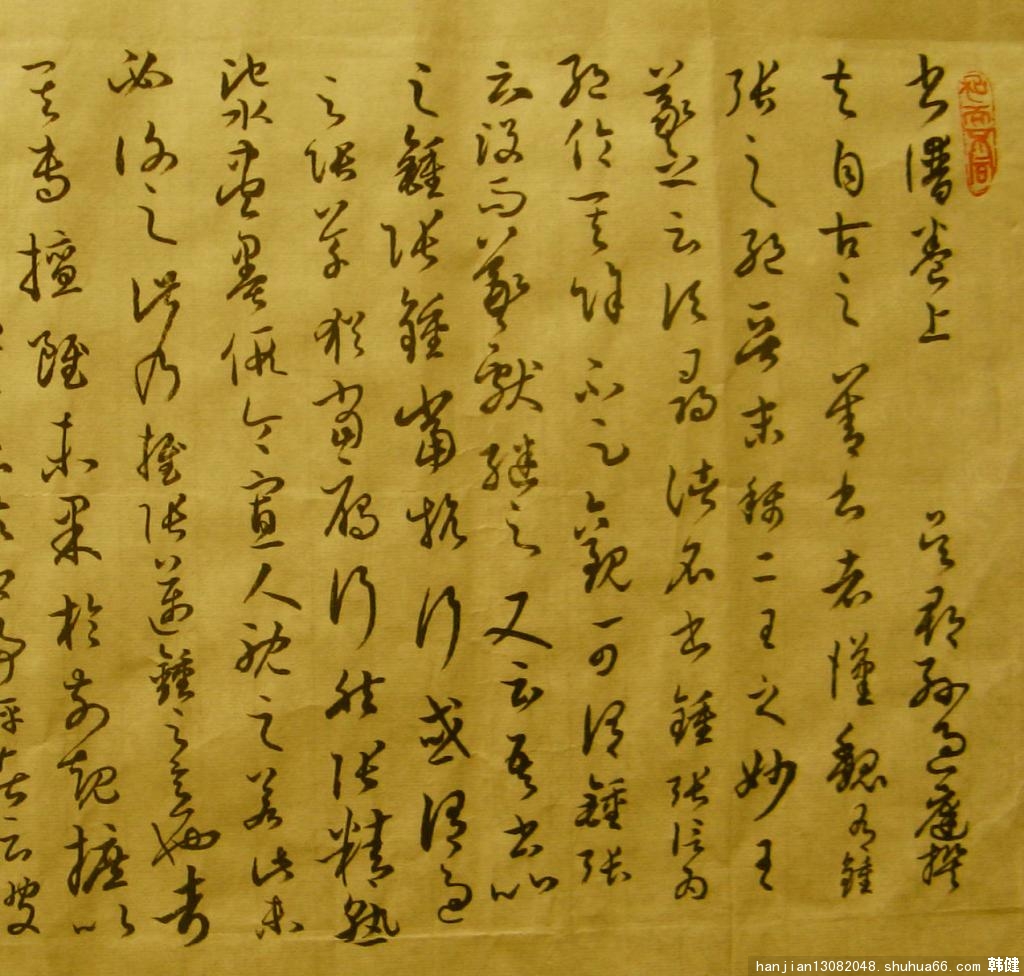 書譜卷上 吳郡孫過庭撰
夫自古之善書者漢魏有鍾
張之絕晉末稱二王之妙王
羲之云頃尋諸名書鍾張信為
絕倫其餘不足觀可謂鍾張
云沒而羲獻繼之又云吾書比
之鍾張鍾當抗行或謂過
之張草猶當鴈行然張精熟
池水盡墨假令寡人耽之若此未
必謝之此乃推張邁鍾之意也考
其專擅雖未果於前規摭以
事評者云彼
hanjian13082048.shuhua66.com 韩健